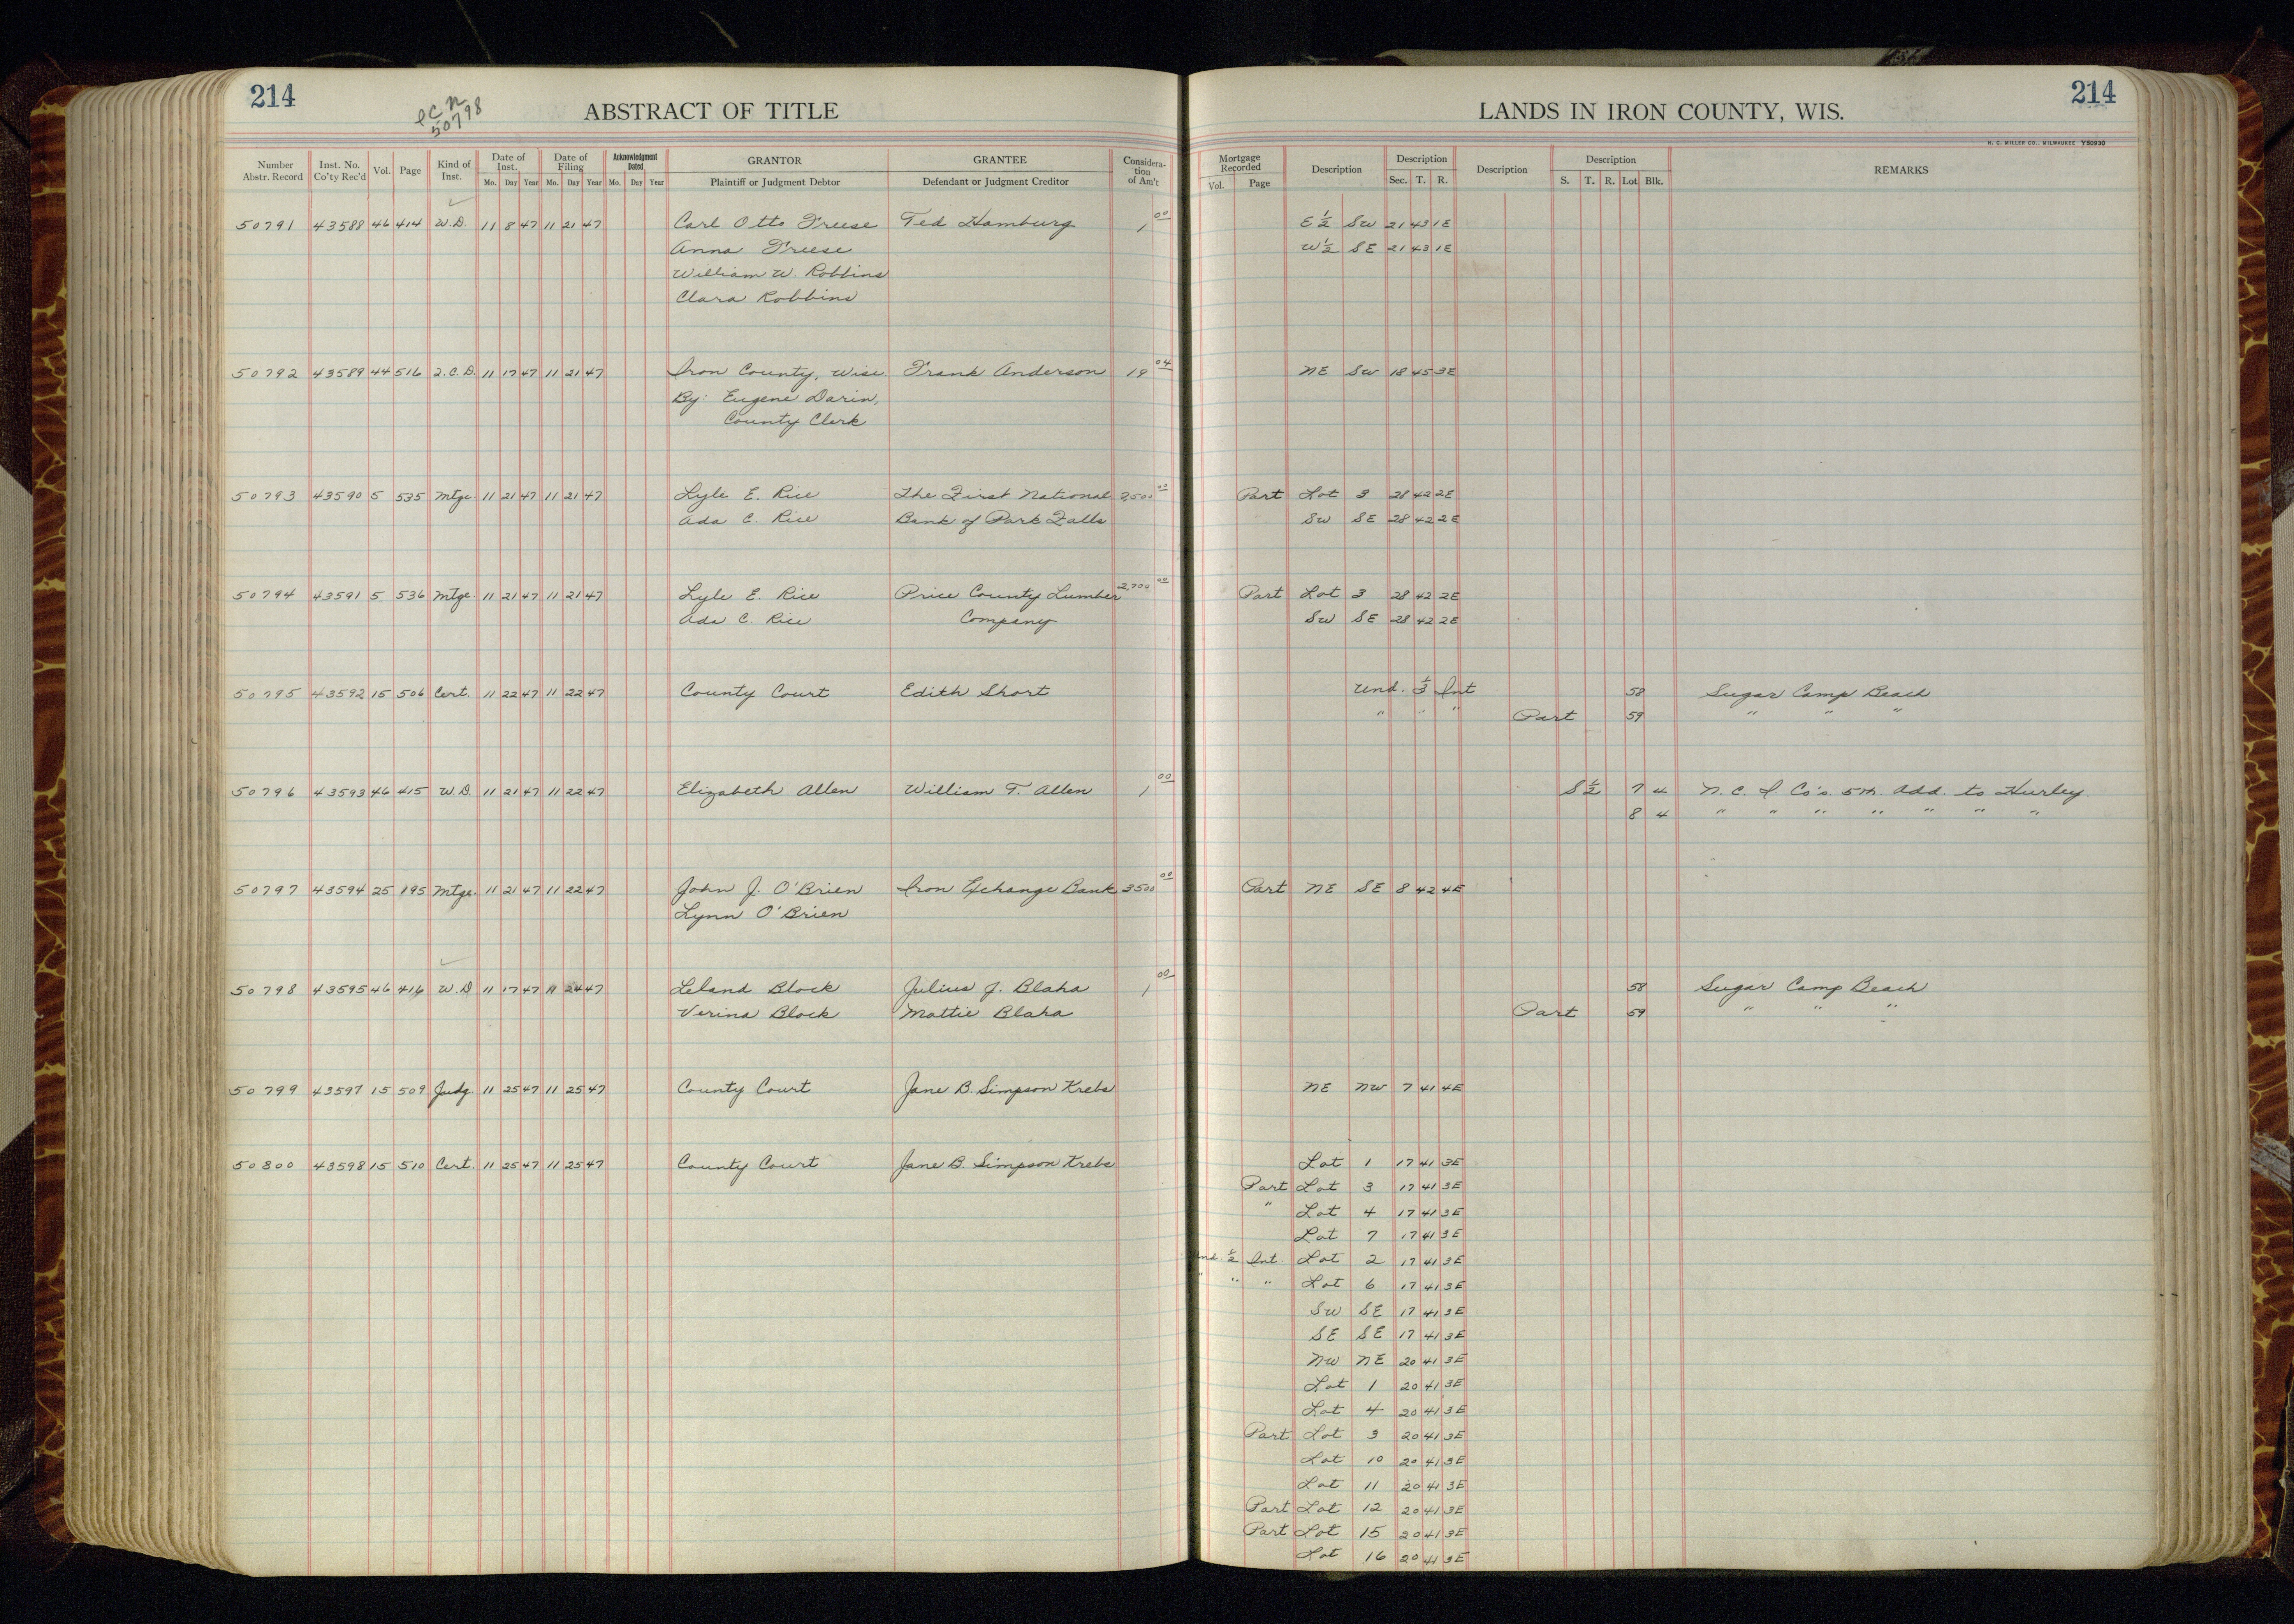 214
50798
ABSTRACT OF TITLE
Number Abstr. Record | Inst. No. Co'ty Rec'd | Vol. | Page | Kind of Inst. | Date of Inst. Mo. Day Year | Date of Filing Mo. Day Year | Acknowledgment Dated Mo. Day Year | GRANTOR Plaintiff or Judgment Debtor | GRANTEE Defendant or Judgment Creditor | Considera-tion of Am't
50791 43588 46 414 W.D. 11 8 47 11 21 47 Carl Otto Freese Ted Hamburg 1 00
Anna Freese
William W. Robbins
Clara Robbins
50792 43589 44 516 2.C.D. 11 17 47 11 21 47 Iron County, Wisc. Frank Anderson 19 04
By: Eugene Darin,
County Clerk
50793 43590 5 535 Mtge. 11 21 47 11 21 47 Lyle E. Rice The First National 2,500 00
Ada C. Rice Bank of Park Falls
50794 43591 5 536 Mtge. 11 21 47 11 21 47 Lyle E. Rice Price County Lumber 2,700 00
Ada C. Rice Company
50795 43592 15 506 Cert. 11 22 47 11 22 47 County Court Edith Short
50796 43593 46 415 W.D. 11 21 47 11 22 47 Elizabeth Allen William T. Allen 1 00
50797 43594 25 195 Mtge. 11 21 47 11 22 47 John J. O'Brien Iron Exchange Bank 3500 00
Lynn O'Brien
50798 43595 46 416 W.D 11 17 47 11 24 47 Leland Block Julius J. Blaha 1 00
Verina Block Mattie Blaha
50799 43597 15 509 Judg. 11 25 47 11 25 47 County Court Jane B. Simpson Krebs
50800 43598 15 510 Cert. 11 25 47 11 25 47 County Court Jane B. Simpson Krebs
214
LANDS IN IRON COUNTY, WIS.
H. C. MILLER CO., MILWAUKEE Y50930
Mortgage Recorded Vol. Page | Description | Description Sec. T. R. | Description | Description S. T. R. Lot Blk. | REMARKS
E 1/2 SW 21 43 1E
W 1/2 SE 21 43 1E
NE SW 18 45 3E
Part Lot 3 28 42 2E
SW SE 28 42 2E
Part Lot 3 28 42 2E
SW SE 28 42 2E
Und. 1/3 Int 58 Sugar Camp Beach
" " " Part 59 " " "
S 1/2 7 4 N. C. I Co's. 5th. Add. to Hurley.
8 4 " " " " " " "
Part NE SE 8 42 4E
58 Sugar Camp Beach
Part 59 " " "
NE NW 7 41 4E
Lot 1 17 41 3E
Part Lot 3 17 41 3E
" Lot 4 17 41 3E
Lot 7 17 41 3E
Und. 1/2 Int. Lot 2 17 41 3E
" " " Lot 6 17 41 3E
SW SE 17 41 3E
SE SE 17 41 3E
NW NE 20 41 3E
Lot 1 20 41 3E
Lot 4 20 41 3E
Part Lot 3 20 41 3E
Lot 10 20 41 3E
Lot 11 20 41 3E
Part Lot 12 20 41 3E
Part Lot 15 20 41 3E
Lot 16 20 41 3E